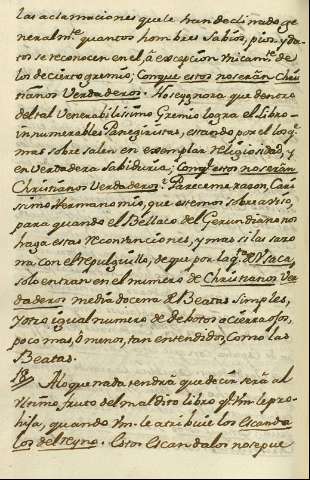 las aclamaciones que le han declinado ge
neralmte. quantos hombres Sabios, pios, y do
tos se reconocen en el, à excepcion unicamte. de
los de cierto gremio; Conque estos no serán Chris
tianos Verdaderos. No se ygnora que dentro
del tal Venerabilissimo Gremio logra el Libro
innumerables Panegiristas, estando por el los q.
mas sobresalen en exemplar religiosidad, y
en verdadera Sabiduria; Conq. estos no serán
Christianos Verdaderos. Pareceme razon, Cari
ssimo Hermano mio, que estemos sobre aviso,
para quando el Bellaco del Gerundiano nos
haga estas reconvenciones, y mas si las sazo
na con el repulguillo, de que por la q.ta de
solo entran en el numero de Christianos Ver
daderos media docena de Beatas simples,
y otro igual numero de debotos à cierra ojos,
poco mas, ò menos, tan entendidos, como las
Beatas.
18 A lo que nada tendrá que decir será al
ultimo fruto del maldito libro q. Vm. le pro
hija, quando Vm. le atribuie los Escanda
los del reyno. Estos Escandalos no se pue